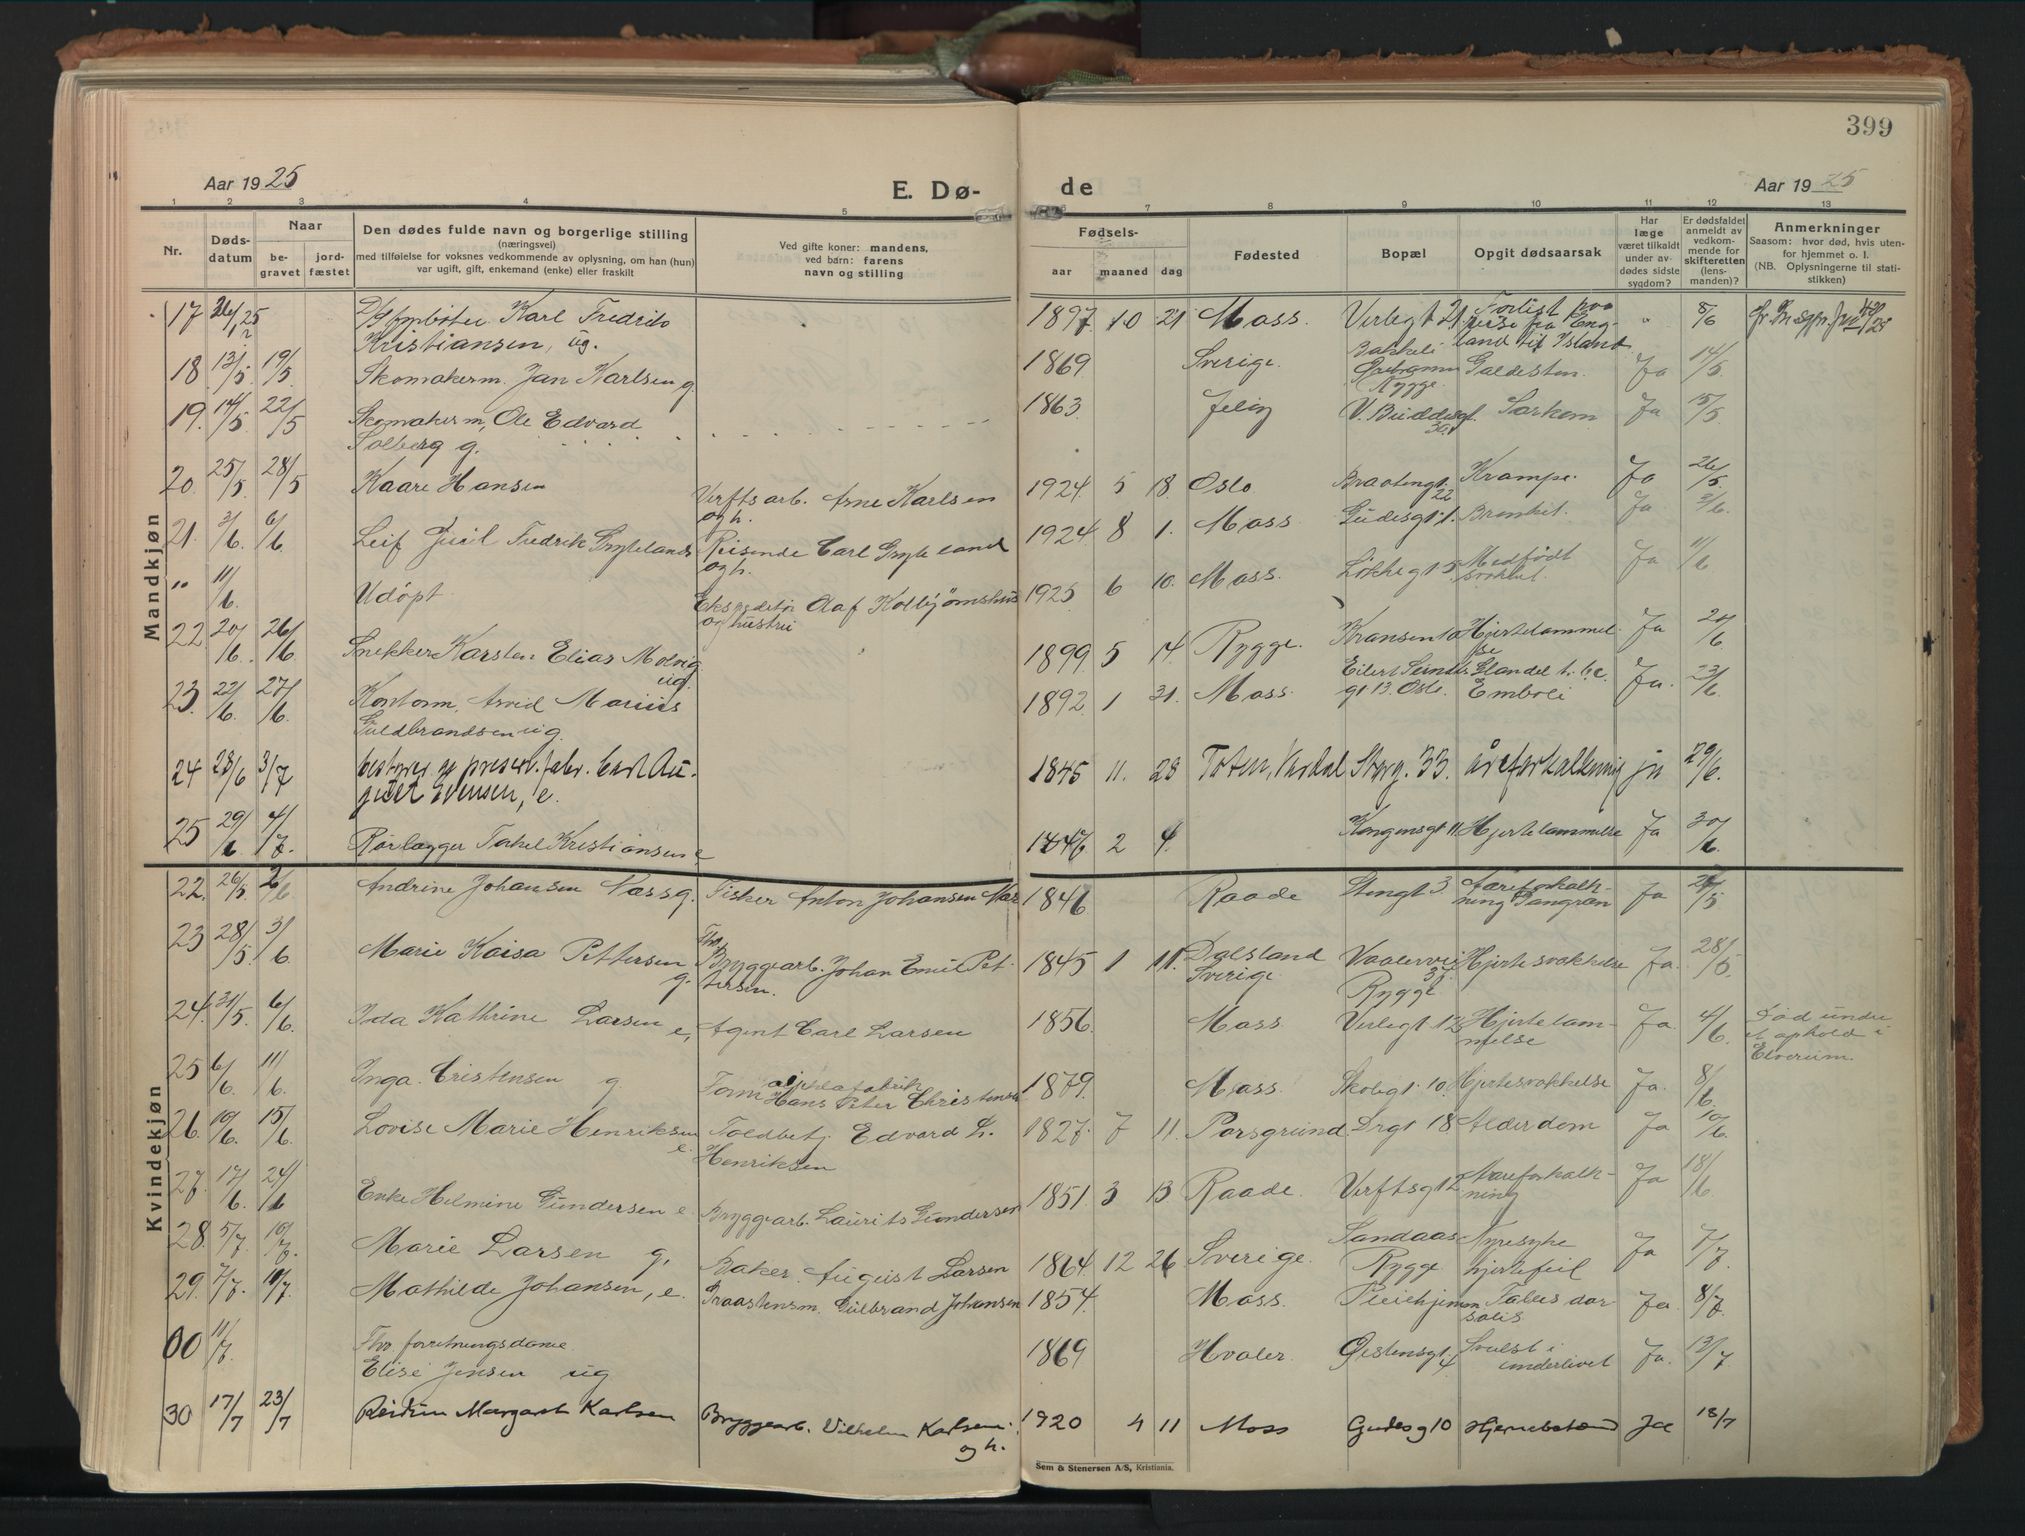 399
Aar 19 25
E. Dø-
de
Aar 19 25
1 2 3 4 5 6 7 8 9 10 11 12 13
Nr.
Døds-
datum
Naar
be-
gravet
jord-
fæstet
Den dødes fulde navn og borgerlige stilling
(næringsvei)
med tilføielse for voksnes vedkommende av oplysning, om han (hun)
var ugift, gift, enkemand (enke) eller fraskilt
Ved gifte koner: mandens,
ved børn: farens
navn og stilling
Fødsels-
aar maaned dag
Fødested
Bopæl
Opgit dødsaarsak
Har
læge
været tilkaldt
under av-
dødes sidste
sygdom?
Er dødsfaldet
anmeldt av
vedkom-
mende for
skifteretten
(lens-
manden)?
Anmerkninger
Saasom: hvor død, hvis uten-
for hjemmet o. l.
(NB. Oplysningerne til stati-
stikken)
Mandkjøn
17 26/2 25 Karl Fredrik
Kristiansen, ug.
1897 10 21 Moss. Verlegt 21. Forlist paa
reise fra Eng-
land til Island 5/6
18 13/5 19/5 Skomakerm. Jan Karlsen g.
1869 Sverige. Bakkeli
Rygge. Galdesten. Ja 14/5
19. 14/5 22/5 Skomakerm, Ole Edvard
Solberg g.
1863 Jeløy V. Buddesgt.
30. Sarkom Ja 15/5
20. 25/5 28/5 Kaare Hansen Verftsarb. Arne Karlsen
og h.
1924 5 18. Oslo Braatengt.
22 Krampe. Ja 26/5
21. 3/6 6/6 Leif Fredrik Grytelands Reisende Carl Gryteland
og h.
1924 8 1. Moss Gudesgt. 1. Bronkit. Ja 3/6.
" 11/6 Udøpt Ekspeditør Olaf
og hustru
1925 6 10. Moss. Løkkegt 5 Medfødt
svakhet. Ja 11/6
22 20/6 26/6 Snekker Karsten Elias Molvig
ug.
1899 5 14. Rygge. Kransen 10 Hjertelammel
se Ja 20/6
23. 22/6 27/6 Kontorm. Arvid Marius
Guldbrandsen ug.
1892 1 31. Moss. Eilert Sundts
gt 13. Oslo. Emboli Ja. 23/6
24 28/6 3/7 Carl Au-
gust Evensen, e.
1845 11. 28 Toten, Vardal Storg. 33. åreforkalkning ja 29/6.
25 29/6 4/7. Rørlægger Torkel Kristiansen e
1846 2 4. Kongensgt 11 Hjertelammelse Ja 30/6.
Kvindekjøn
22. 26/5 2/6 Andrine Johansen Nass g. Fisker Anton Johansen
1846 Raade Stengt 3. Aareforkalk-
ning Gangræn Ja 27/5
23 28/5 3/6 Marie Kaisa Pettersen
g. Fhv.
Bryggearb. Johan Emil Pet-
tersen.
1845 1 11. Dalsland
Sverige Vaalervei
37
Rygge Hjertesvækkelse Ja. 28/5.
24. 31/5. 6/6. Ida Kathrine Larsen e, Agent Carl Larsen
1856. Moss. Verlegt 12 Hjertelam-
melse Ja. 4/6. Død under
et ophold i
Elverum.
25 6/6 11/6. Inga Cristensen g Hans Peter Christensen
1879. Moss. Skolegt. 10. Hjertesvækkelse Ja. 8/6.
26. 10/6. 15/6. Lovise Marie Henriksen
e. Toldbetj. Edvard L.
Henriksen
1827. 7 11. Porsgrund. Drgt 18 Alderdom Ja 10/6.
27. 17/6. 24/6 Enke Helmine Gundersen e. Bryggearb. Laurits Gundersen
1851. 3 13 Raade. Verftsgt 12 Aareforkalk-
ning Ja 18/6
28. 5/7. 10/7. Marie Larsen g, Baker August Larsen
1864. 12 26 Sverige. Sandaas
Rygge Nyresyke
hjertefeil Ja 7/7.
29. 7/7. 10/7. Mathilde Johansen, e. Graastensm. Gulbrand Johansen
1854. Moss. Pleiehjemm. Tabes dor
salis Ja. 8/7.
00 11/7. Fhv. forretningsdame
Elise Jensen ug
1869 Hvaler. Østensgt.
4 Svulst i
underlivet Ja. 13/7.
30 17/7 23/7 Reidun Margaret Karlsen Bryggearb. Vilhelm Karlsen
og h.
1920 4 11 Moss Gudesg 10 Ja 18/7
Sem & Stenersen A/S, Kristiania.